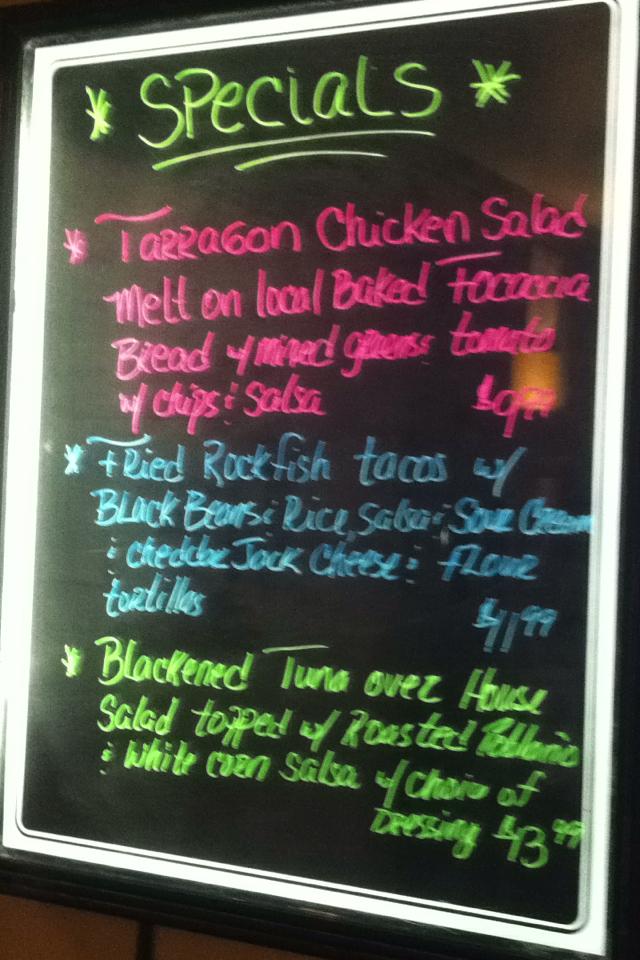 * Specials *
* Tarragon Chicken Salad
melt on local Baked foccaccia
Bread w/ mixed greens & tomato
w/ chips & Salsa $9.99
* Fried Rockfish tacos w/
Black Beans & Rice, Salsa & Sour Cream
& cheddar Jack Cheese & flour
tortillas $11.99
* Blackened Tuna over House
Salad topped w/ Roasted
& White corn Salsa w/ choice of
Dressing $13.99